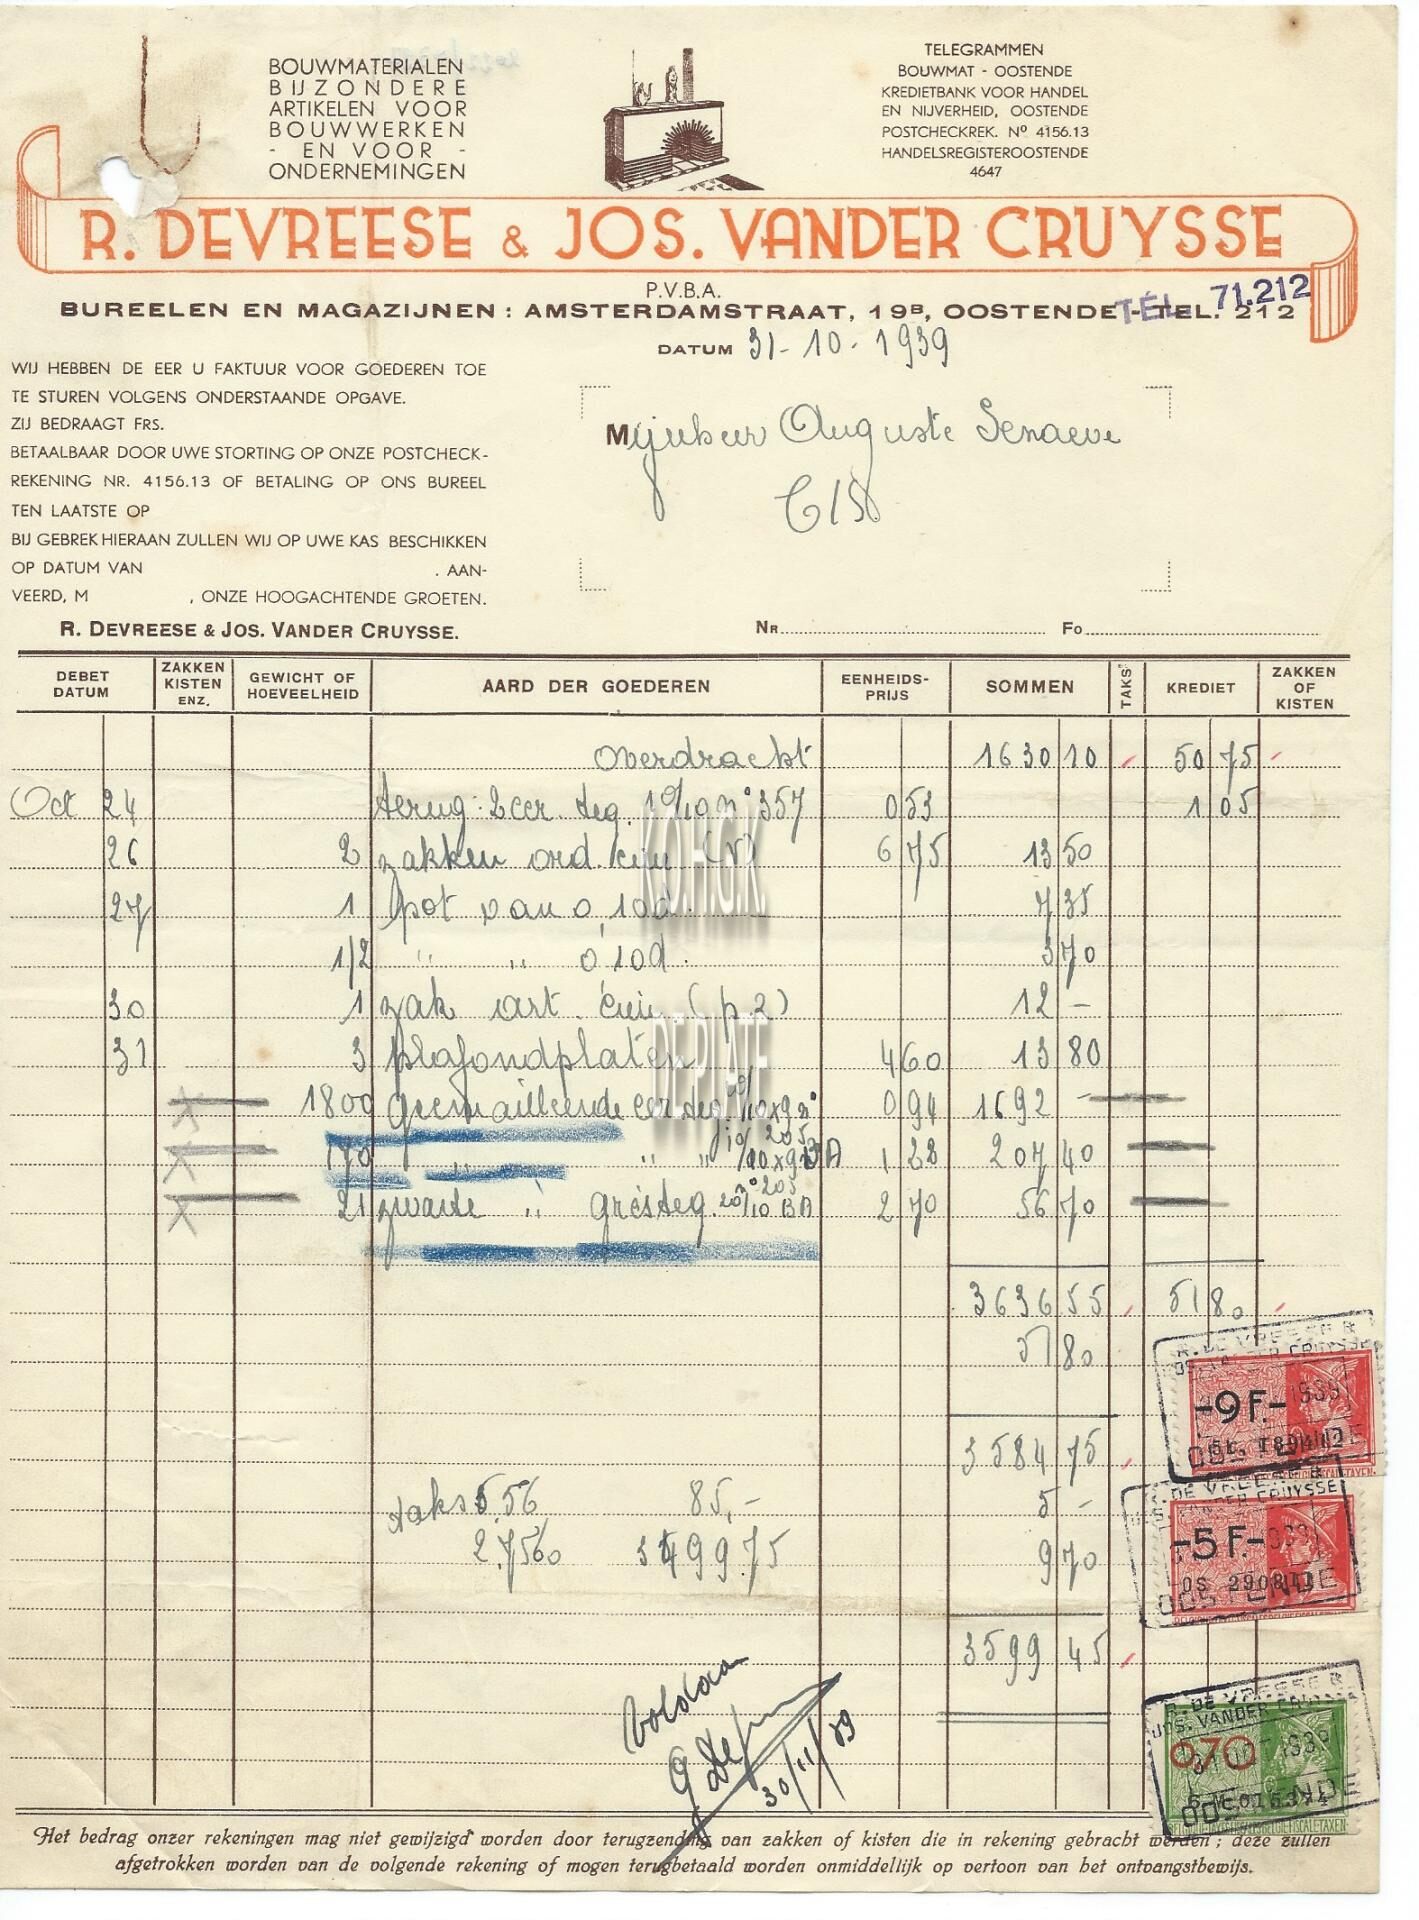 BOUWMATERIALEN
BIJZONDERE
ARTIKELEN VOOR
BOUWWERKEN
- EN VOOR -
ONDERNEMINGEN
TELEGRAMMEN
BOUWMAT - OOSTENDE
KREDIETBANK VOOR HANDEL
EN NIJVERHEID, OOSTENDE
POSTCHECKREK. Nº 4156.13
HANDELSREGISTEROOSTENDE
4647
R. DEVREESE & JOS. VANDER CRUYSSE
P.V.B.A.
BUREELEN EN MAGAZIJNEN : AMSTERDAMSTRAAT, 19B, OOSTENDE - TEL. 212
TÉL. 71.212
DATUM 31-10-1939
WIJ HEBBEN DE EER U FAKTUUR VOOR GOEDEREN TOE
TE STUREN VOLGENS ONDERSTAANDE OPGAVE.
ZIJ BEDRAAGT FRS.
BETAALBAAR DOOR UWE STORTING OP ONZE POSTCHECK-
REKENING NR. 4156.13 OF BETALING OP ONS BUREEL
TEN LAATSTE OP
BIJ GEBREK HIERAAN ZULLEN WIJ OP UWE KAS BESCHIKKEN
OP DATUM VAN . AAN-
VEERD, M , ONZE HOOGACHTENDE GROETEN.
R. DEVREESE & JOS. VANDER CRUYSSE.
Mijnheer Auguste Senaeve
NR. FO.
DEBET DATUM ZAKKEN KISTEN ENZ. GEWICHT OF HOEVEELHEID AARD DER GOEDEREN EENHEIDS-PRIJS SOMMEN TAKS KREDIET ZAKKEN OF KISTEN
Overdracht 1630 10 50 75
Oct 24 terug: 2 cer. teg. 10/10 nº 357 0 53 1 05
26 2 zakken ord. cim (v) 6 75 13 50
27 1 pot van 0,10d. 7 35
1/2 " " 0,10d. 3 70
30 1 zak art. cim. (p.2) 12 -
31 3 plafondplaten 4 60 13 80
1800 geemailleerde cer. teg. 10/10x9 nº 205 0 94 1692 -
170 " " " 10/10x9 BA nº 205 1 22 207 40
21 zwarte " grèsteg. 20/10 BA 2 70 56 70
3636 55 51 80
51 80
3584 75
taks 5.56 85,- 5 -
2.7560 3499.75 9 70
3599 45
Voldaan
30/11/39
R. DE VREESE &
JOS. VANDER CRUYSSE
-9 F.-
1939
OOSTENDE
R. DE VREESE &
JOS. VANDER CRUYSSE
-5 F.-
1939
OS 290811
OOSTENDE
R. DE VREESE &
JOS. VANDER CRUYSSE
0,70
31 1939
OOSTENDE
KOHGK
DE PLATE
Het bedrag onzer rekeningen mag niet gewijzigd worden door terugzending van zakken of kisten die in rekening gebracht werden ; deze zullen
afgetrokken worden van de volgende rekening of mogen terugbetaald worden onmiddellijk op vertoon van het ontvangstbewijs.